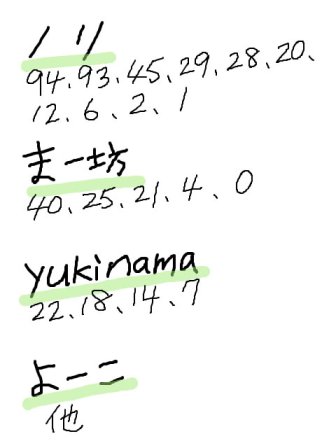 ノリ
94、93、45、29、28、20、
12、6、2、1
まー坊
40、25、21、4、0
yukinama
22、18、14、7
よーこ
他